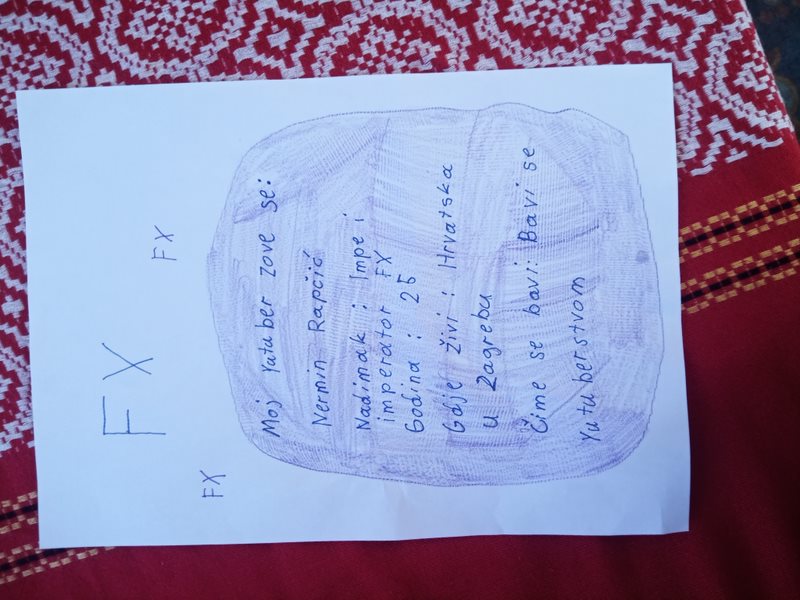 FX
FX
FX
Moj Yatuber zove se:
Nermin Rapčić
Nadimak : Impe i
imperator FX
Godina : 25
Gdje živi : Hrvatska
u Zagrebu
Čime se bavi: Bavi se
Yutuberstvom